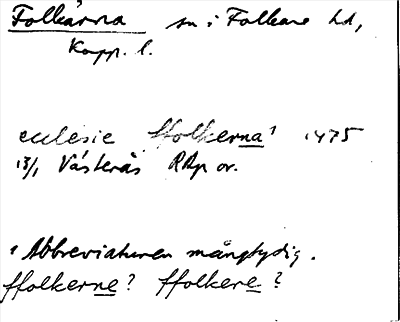 Folkärna sn i Folkare hd,
Kopp. l.
ecclesie ffolkerna¹ 1475
13/1 Västerås RAp or.
¹ Abbreviaturen mångtydig.
ffolkerne? ffolkere?